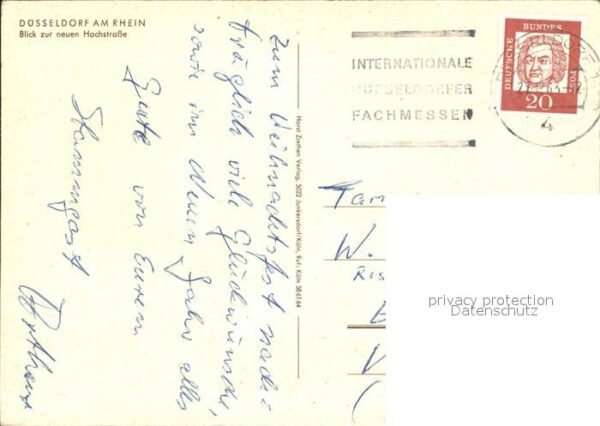 DÜSSELDORF AM RHEIN
Blick zur neuen Hochstraße
Zum Weihnachtsfest nach-
träglich viele Glückwünsche,
sowie im Neuen Jahr alles
Gute von Eurem
Stammgast
Horst Ziethen Verlag, 5022 Junkersdorf/Köln, Ruf: Köln 58 61 64
INTERNATIONALE
DÜSSELDORFER
FACHMESSEN
DEUTSCHE
BUNDES
POST
20
4
Fam
W.
privacy protection
Datenschutz